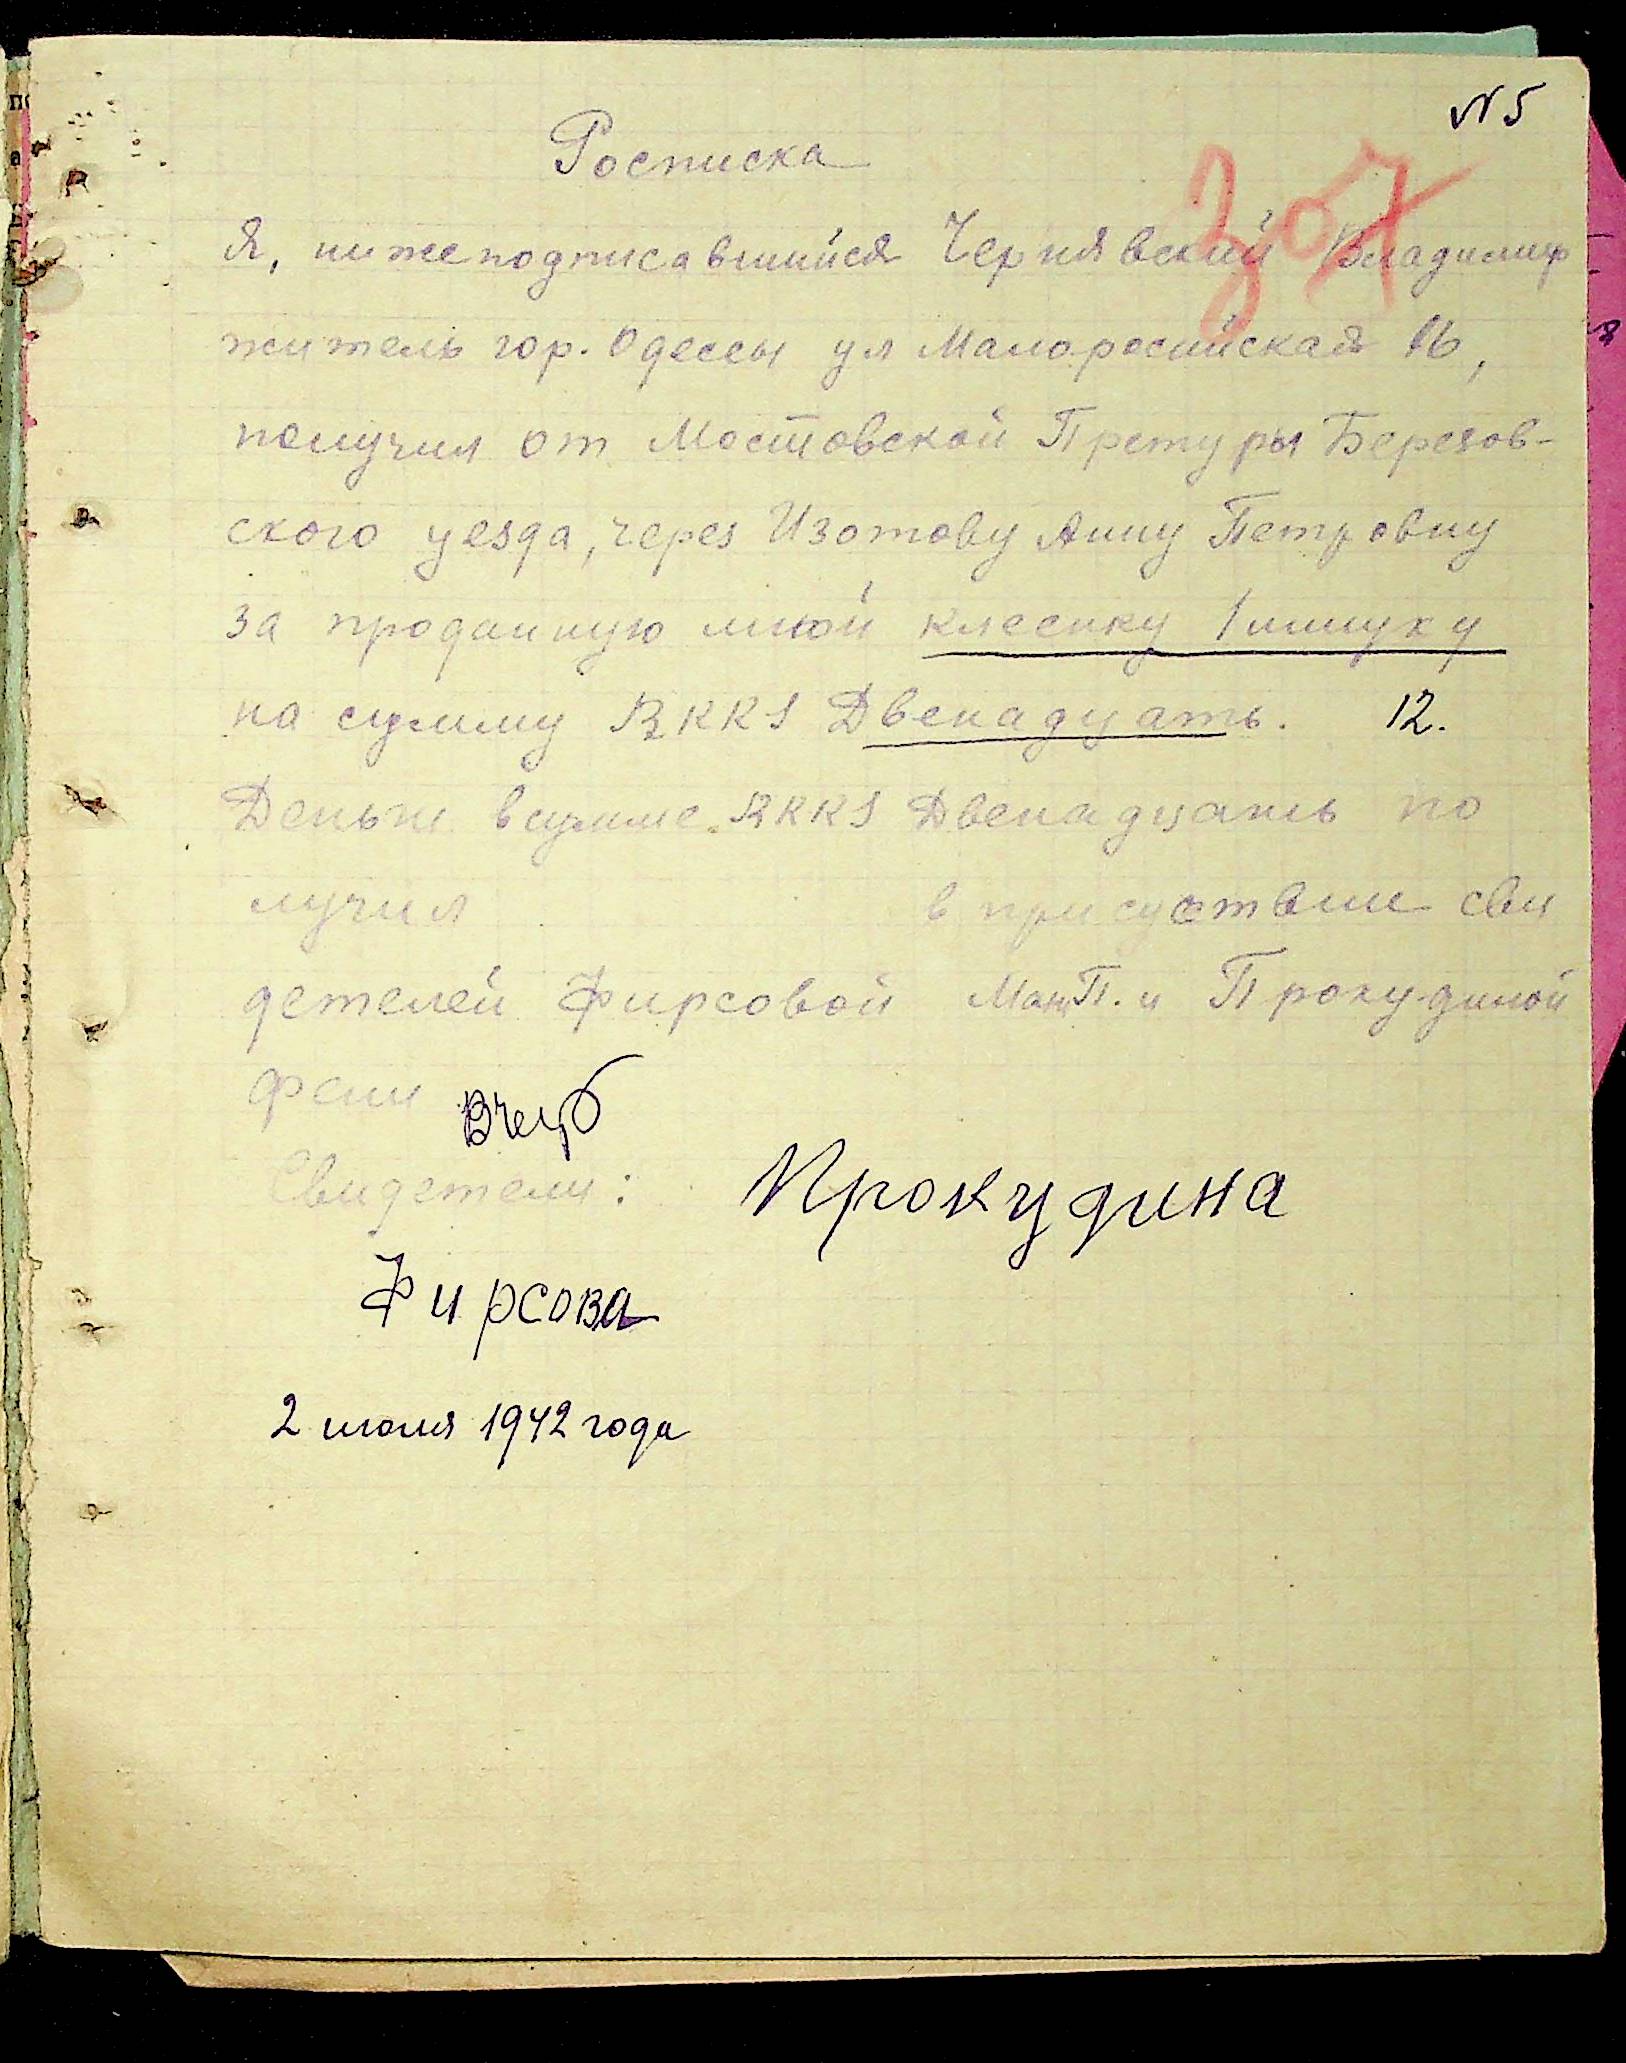 N 5
307
Росписка
Я, нижеподписавшийся Чернявский Владимир
житель гор. Одессы ул Малоросийская 16,
получил от Мостовской Претуры Березов-
ского уезда, через Изотову Анну Петровну
за проданную мной клеенку 1 штуку
на сумму RKKS Двенадцать. 12.
Деньги в сумме RKKS Двенадцать по
лучил в присуствии сви
детелей Фирсовой П. и Прокудиной
фени
Свидетели: Прокудина
Фирсова
2 июля 1942 года